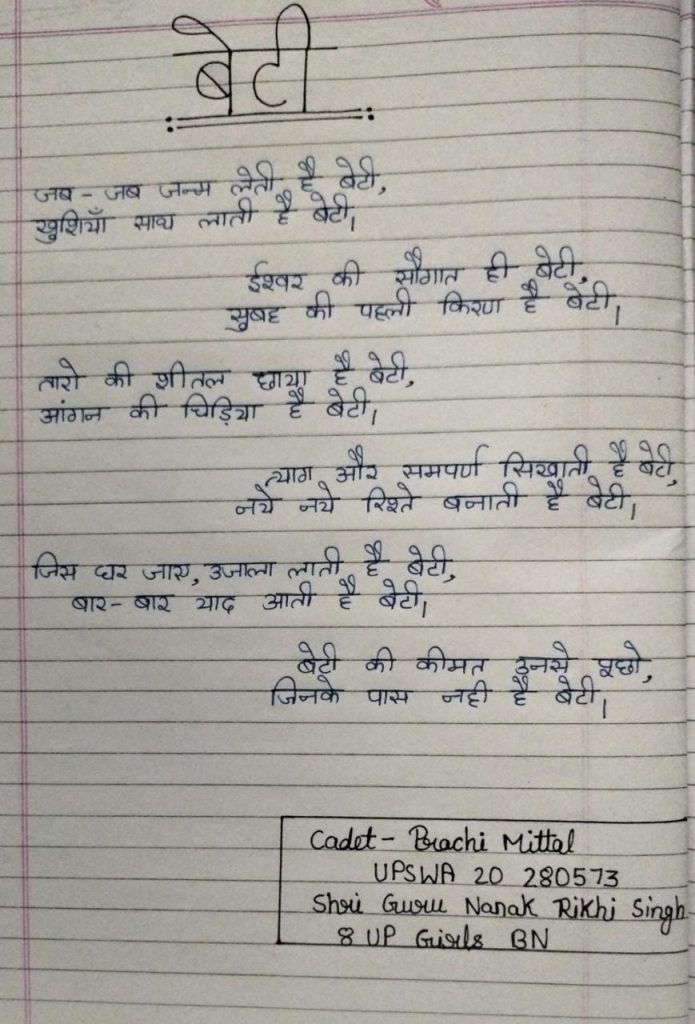 बेटी
जब - जब जन्म लेती है बेटी,
खुशियाँ साथ लाती है बेटी।
ईश्वर की सौगात ही बेटी,
सुबह की पहली किरण है बेटी।
तारो की शीतल छाया है बेटी,
आंगन की चिड़िया है बेटी।
त्याग और समपर्ण सिखाती है बेटी,
नये नये रिश्ते बनाती है बेटी।
जिस घर जाए, उजाला लाती है बेटी,
बार-बार याद आती है बेटी।
बेटी की कीमत उनसे पूछो,
जिनके पास नही है बेटी।
Cadet - Prachi Mittal
UPSWA 20 280573
Shri Guru Nanak Rikhi Singh
8 UP Girls BN